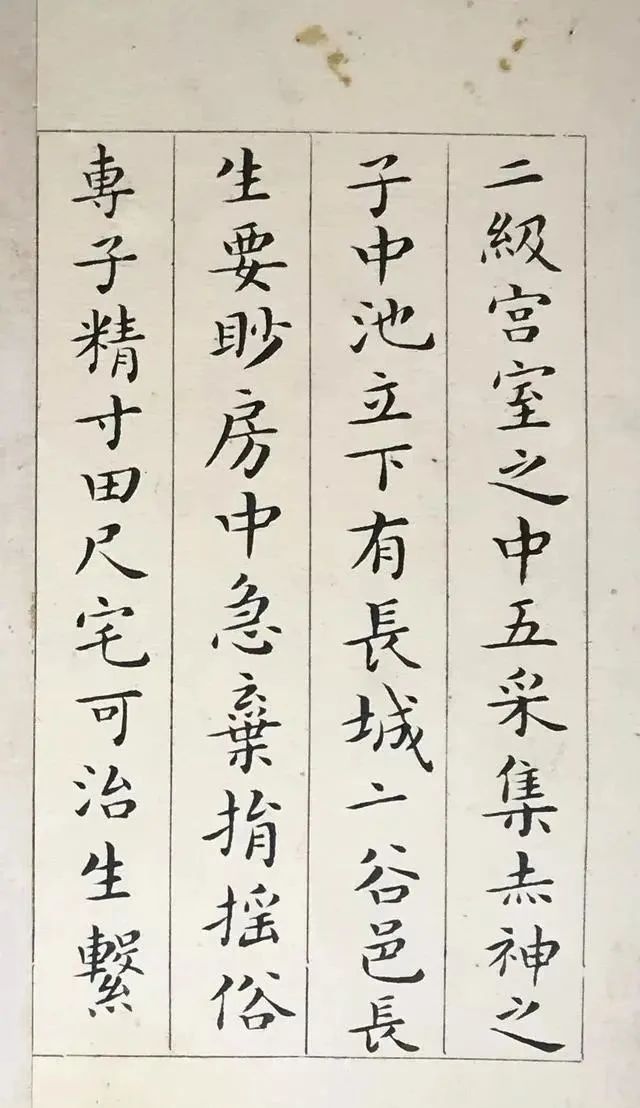 二級宫室之中五采集赤神之
子中池立下有長城亠谷邑長
生要眇房中急棄捐摇俗
専子精寸田尺宅可治生繫